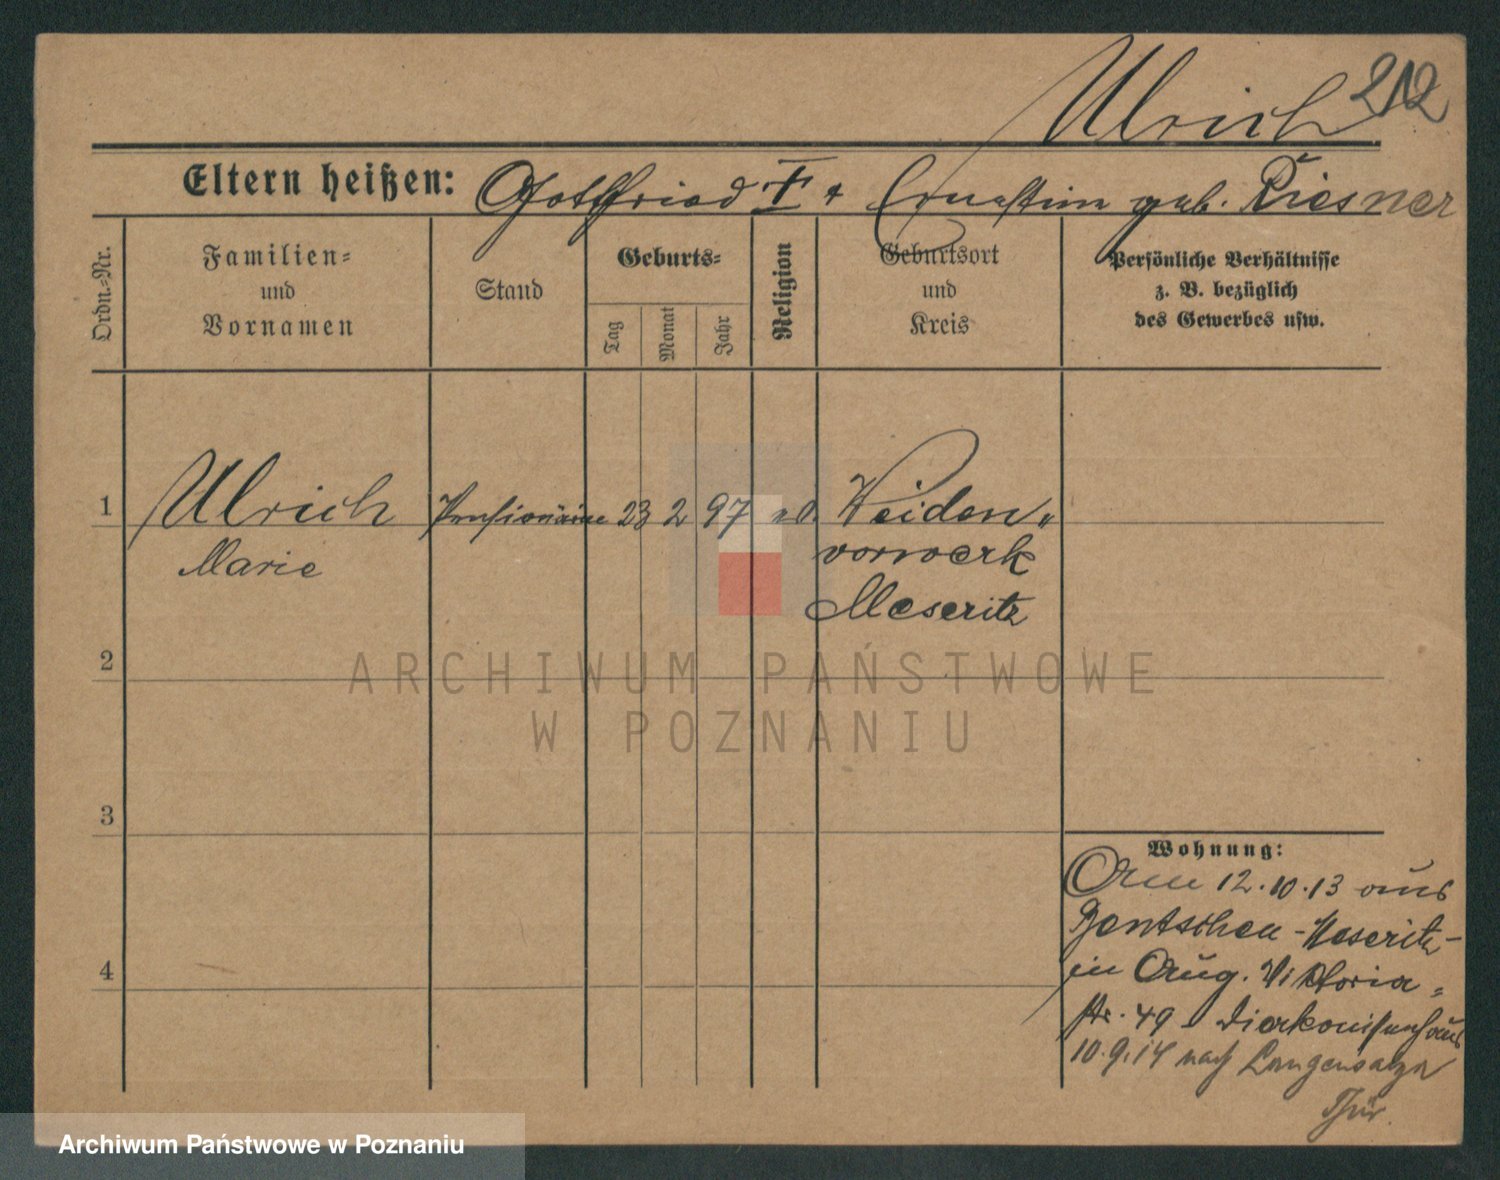 Ulrich 212
Eltern heißen: Gottfried † + Ernestine geb. Riesner
Ordn.-Nr.
Familien-
und
Vornamen
Stand
Geburts-
Tag
Monat
Jahr
Religion
Geburtsort
und
Kreis
Persönliche Verhältnisse
z. B. bezüglich
des Gewerbes usw.
1 Ulrich Pensionärin 23 2 97 Weiden-
Marie vorwerk
Meseritz
2
ARCHIWUM PAŃSTWOWE
W POZNANIU
3
4
Wohnung:
12.10.13 aus
Bentschen - Meseritz -
in Aug. Viktoria-
str. 49 Diakonissenhaus
10.9.14 nach Langensalza
Thür.
Archiwum Państwowe w Poznaniu